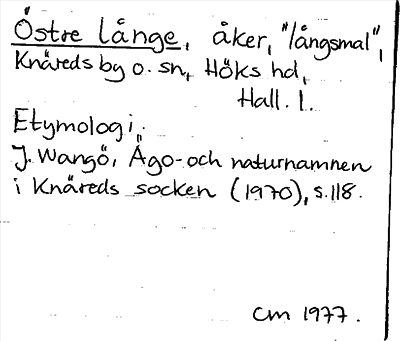 Östre långe, åker, "långsmal",
Knäreds by o. sn, Höks hd,
Hall. l.
Etymologi:
J. Wangö, Ägo- och naturnamnen
i Knäreds socken (1970), s. 118.
CM 1977.